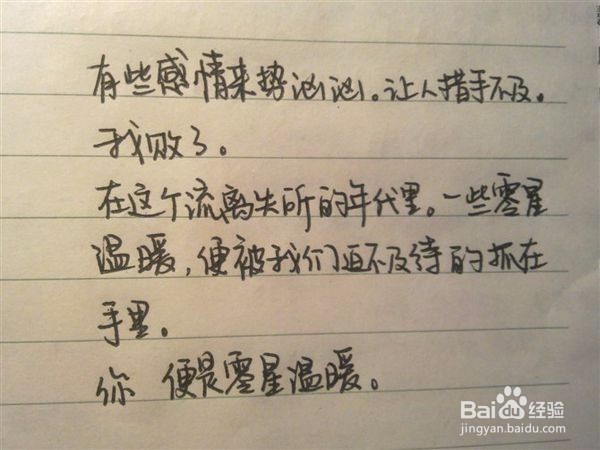 有些感情来势汹汹。让人措手不及。
我败了。
在这个流离失所的年代里。一些零星
温暖，便被我们迫不及待的抓在
手里。
你 便是零星温暖。
Baidu经验
jingyan.baidu.com